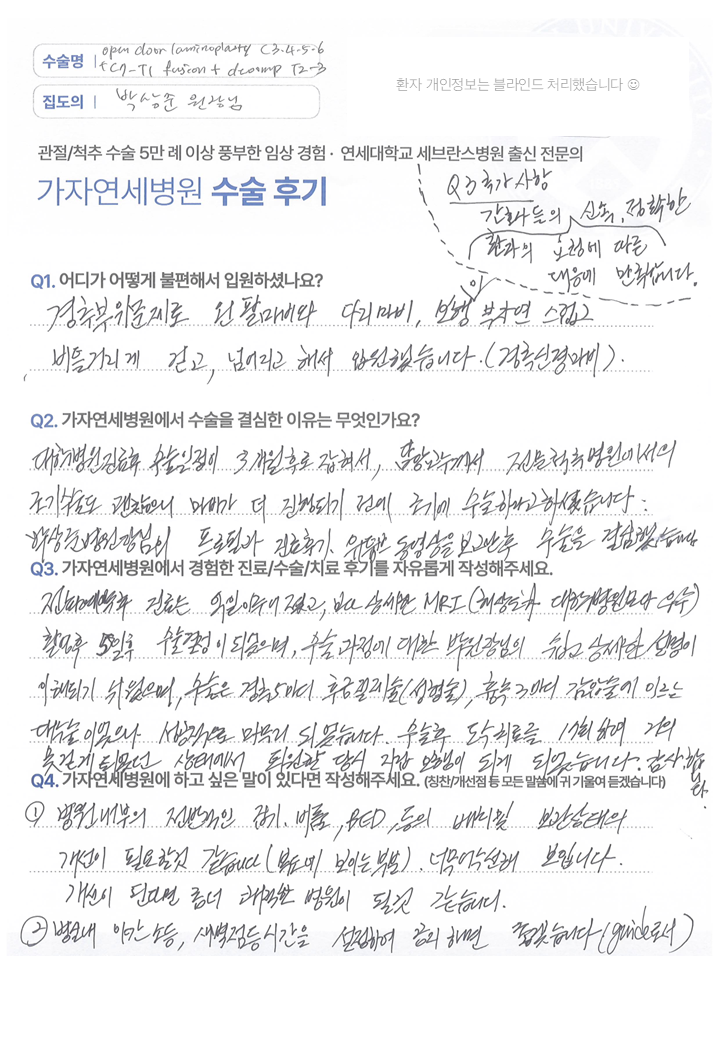 수술명 | open door laminoplasty C3.4.5.6
+ C7-T1 fusion + decomp T2-3
집도의 | 박상준 원장님
환자 개인정보는 블라인드 처리했습니다 ☺
관절/척추 수술 5만 례 이상 풍부한 임상 경험 · 연세대학교 세브란스병원 출신 전문의
가자연세병원 수술 후기
Q3 추가사항
간호사들의 신속, 정확한
환자의 요청에 따른
대응에 만족합니다.
Q1. 어디가 어떻게 불편해서 입원하셨나요?
경추부위문제로 왼팔마비와 다리마비, 보행이 부자연스럽고
비틀거리게 걷고, 넘어지고 해서 입원했습니다. (경추신경마비).
Q2. 가자연세병원에서 수술을 결심한 이유는 무엇인가요?
대학병원진료후 수술일정이 3개월후로 잡혀서, 담당교수께서 전문척추병원에서의
조기수술도 괜찮으니 마비가 더 진행되기 전에 조기에 수술하라고하셨습니다.
박상준병원장님의 프로필과 진료후기. 유튜브 동영상을 보고난후 수술을 결심했습니다
Q3. 가자연세병원에서 경험한 진료/수술/치료 후기를 자유롭게 작성해주세요.
전화예약후 진료는 익일이루어졌고, 보다 상세한 MRI (해상도가 대학병원보다 우수)
촬영후 5일후 수술결정이 되었으며, 수술과정에 대한 박원장님의 쉽고 상세한 설명이
이해되기 쉬웠으며, 수술은 경추5마디 후궁(성형술), 흉추3마디 감압술에 이르는
대수술이었으나 성공적으로 마무리 되었습니다. 수술후 도수치료를 17회 하여 거의
못걷게 되었던 상태에서 퇴원할 당시 자갑 보행이 되게 되었습니다. 감사합니다.
Q4. 가자연세병원에 하고 싶은 말이 있다면 작성해주세요. (칭찬/개선점 등 모든 말씀에 귀 기울여 듣겠습니다)
① 병원내부의 전반적인 집기. 비품, BED, 등의 배치및 보관상태의
개선이 필요할것 같습니다 (복도에 보이는 부분). 너무어수선해 보입니다.
개선이 된다면 좀더 쾌적한 병원이 될것 같습니다.
② 병실내 야간소등, 새벽점등시간을 설정하여 공지하면 좋겠습니다 (guide로서)